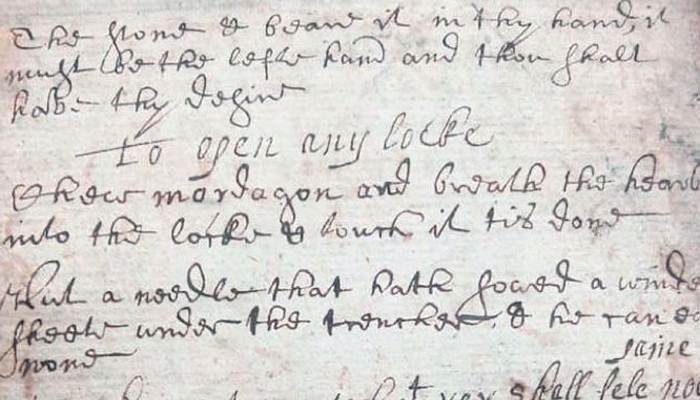 The stone & beare it in thy hand, it
must be the lefte hand and thou shalt
have thy desire
To open any locke
mordagon and breath the
into the locke & touch it tis done
Put a needle that hath sowed a winde
sheete under the trencher & he can
none
same
shall